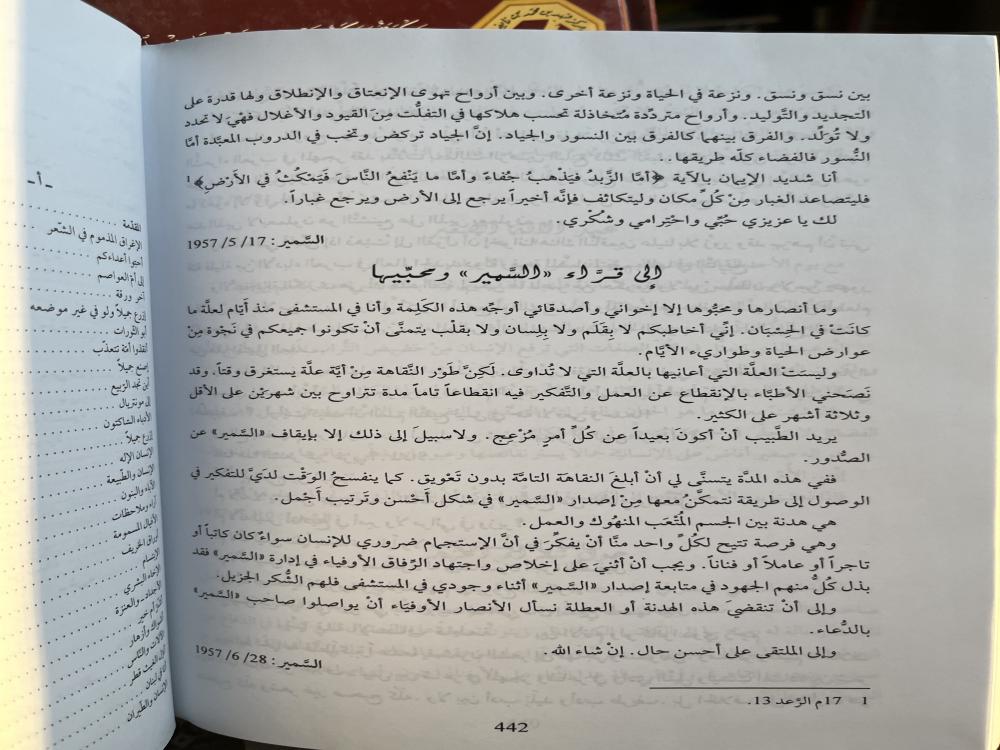 بين نسق ونسق. ونزعة في الحياة ونزعة أخرى. وبين أرواح تهوى الإنعتاق والإنطلاق ولها قدرة على
التجديد والتَّوليد. وأرواح متردّدة مُتخاذلة تحسب هلاكها في التفلُّت مِنَ القيود والأغلال فهْيَ لا تحدد
ولا تُوَلّد. والفرق بينهما كالفرق بين النسور والجياد. إنَّ الجياد تركض وتخب في الدروب المعبَّدة أمَّا
النُّسور فالفضاء كلّه طريقها..
أنا شديد الإيمان بالآية ﴿أمَّا الزَّبدُ فيَذهبُ جُفاءً وأمَّا ما يَنْفعُ النَّاسَ فَيَمْكثُ في الأرْضِ﴾¹
فليتصاعد الغبار مِنْ كُلِّ مكان وليتكاثف فإنَّه أخيراً يرجع إلى الأرض ويرجع غباراً.
لك يا عزيزي حُبّي واحْتِرامي وشُكْري.
السَّمير: 17/ 5/ 1957
إلى قرَّاء «السَّمير» ومحبّيها
وما أنصارها ومحبُّوها إلا إخواني وأصدقائي أوجِّه هذه الكَلِمة وأنا في المستشفى منذ أيَّام لعلَّة ما
كانَتْ في الحِسْبَان. إنِّي أخاطبكم لا بِقَلَم ولا بِلِسان ولا بقلْب يتمنَّى أنْ تكونوا جميعكم في نَجْوة مِنْ
عوارض الحياة وطواريء الأيَّام.
وليسَتْ العلَّة التي أعانيها بالعلَّة التي لا تُداوى. لَكِنَّ طَوْر النَّقاهة مِنْ أيَّة علَّة يستغرق وقتاً. وقد
نَصَحَني الأطبَّاء بالإنقطاع عن العمل والتَّفكير فيه انقطاعاً تاماً مدة تتراوح بين شهريْن على الأقل
وثلاثة أشهر على الكثير.
يريد الطَّبيب أنْ أكونَ بعيداً عن كُلِّ أمرٍ مُزْعِج. ولا سبيلَ إلى ذلك إلا بإيقاف «السَّمير» عن
الصُّدور.
ففي هذه المدَّة يتسنَّى لي أنْ أبلغَ النقاهة التامَّة بدون تَعْويق. كما ينفسحُ الوَقْت لدَيَّ للتفكير في
الوصول إلى طريقة نتمكَّنُ معها مِنْ إصدار «السَّمير» في شكل أحْسن وتَرتيب أجْمل.
هي هدنة بين الجسم المُتْعَب المنهُوك والعمل.
وهي فرصة تتيح لكُلِّ واحد منَّا أنْ يفكِّرَ في أنَّ الإستجمام ضروري للإنسان سواءٌ كان كاتباً أو
تاجراً أو عاملاً أو فناناً. ويجب أنْ أثنيَ على إخلاص واجتهاد الرِّفاق الأوفياء في إدارة «السَّمير» فقد
بذل كُلُّ منهم الجهود في متابعة إصدار «السَّمير» أثناء وجودي في المستشفى فلهم الشُّكر الجزيل.
وإلى أنْ تنقضيَ هذه الهدنة أو العطلة نسأل الأنصار الأوفيَاء أنْ يواصلوا صاحب «السَّمير»
بالدُّعاء.
وإلى الملتقى على أحسن حال. إنْ شاء الله.
السَّمير: 28/ 6/ 1957
1 17م الرَّعد 13.
442
-أ-
المقدّمة
الإغراق المذموم في الشّعر
أحبّوا أعداءكم
إلى أمّ العواصم
آخر ورقة
إزرع جميلاً ولو في غير موضعه
أبو الثّورات
أنقذوا أمّة تتعذّب
إصنع جميلاً
أين نجد الرّبيع
إلى مونتريال
الأدباء الشّاكون
إزرع جميلاً
الإنسان الإله
الإنسان والطّبيعة
الآباء والبنون
آراء وملاحظات
الأقيال المسمومة
أوراق الخريف
الإبتسام
الإخاء البشري
الأجداد والعنزة
أشواك وأزهار
أنا في لبنان
الإنسان والطّيران